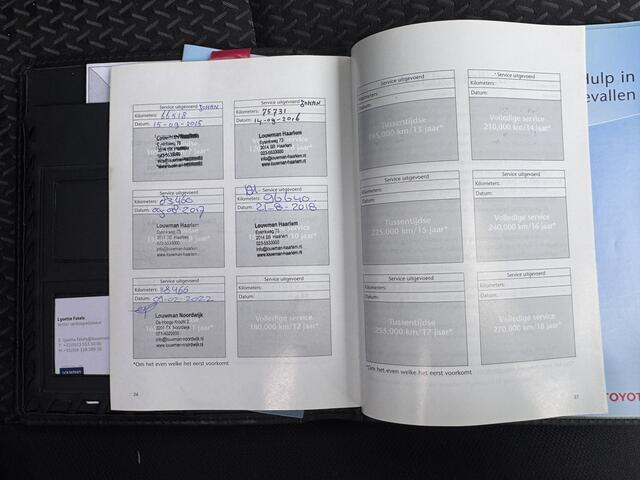 Service uitgevoerd JOHAN
Kilometers: 66518
Datum: 15-09-2015
Louwman Haarlem
Service uitgevoerd JOHAN
Kilometers: 75731
Datum: 14-09-2016
Louwman Haarlem
Eysinkweg 73
2014 SB Haarlem
023-5533000
info@louwman-haarlem.nl
Service uitgevoerd
Kilometers:
Datum:
Louwman Haarlem
Eysinkweg 73
2014 SB Haarlem
023-5533000
info@louwman-haarlem.nl
Service uitgevoerd
Kilometers: 96640
Datum: 21-8-2018
Louwman Haarlem
Eysinkweg 73
2014 SB Haarlem
023-5533000
info@louwman-haarlem.nl
Service uitgevoerd
Kilometers:
Datum: 09-02-2022
Louwman Noordwijk
2201 TX Noordwijk
info@louwman-noordwijk.nl
Service uitgevoerd
Kilometers:
Datum:
Volledige service
180,000 km/12 jaar*
*Om het even welke het eerst voorkomt
26
Service uitgevoerd
Kilometers:
Datum:
Tussentijdse
195,000 km/13 jaar*
Service uitgevoerd
Kilometers:
Datum:
Volledige service
210,000 km/14 jaar*
Service uitgevoerd
Kilometers:
Datum:
Tussentijdse
225,000 km/15 jaar*
Service uitgevoerd
Kilometers:
Datum:
Volledige service
240,000 km/16 jaar*
Service uitgevoerd
Kilometers:
Datum:
Tussentijdse
255,000 km/17 jaar*
Service uitgevoerd
Kilometers:
Datum:
Volledige service
270,000 km/18 jaar*
*Om het even welke het eerst voorkomt
27
Hulp in
evallen
TOYOT
Lysette Fakels